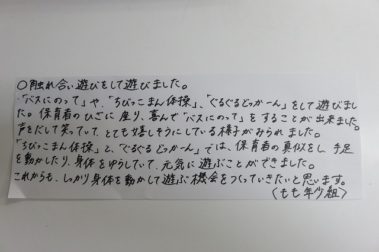 ○触れ合い遊びをして遊びました。
・「バスにのって」や、「ちびっこまん体操」、「ぐるぐるどっかーん」をして遊びまし
た。保育者のひざに座り、喜んで「バスにのって」をすることが出来ました。
声をだして笑っていて、とても嬉しそうにしている様子がみられました。
「ちびっこまん体操」と、「ぐるぐるどっかーん」では、保育者の真似をし、手足
を動かしたり、身体をゆらしていて、元気に遊ぶことができました。
これからも、しっかり身体を動かして遊ぶ機会をつくっていきたいと思います。
(もも年少組)